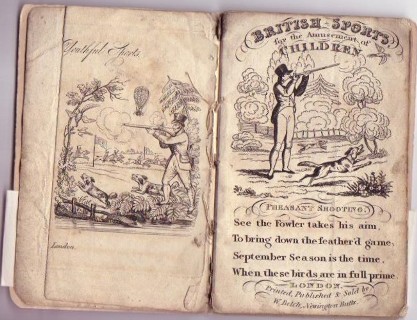 Youthful Sports.
London.
BRITISH SPORTS
for the Amusement of
CHILDREN
PHEASANT SHOOTING.
See the Fowler takes his aim,
To bring down the feather'd game;
September Season is the time,
When these birds are in full prime.
LONDON.
Printed, Published & Sold by
W. Belch, Newington Butts.